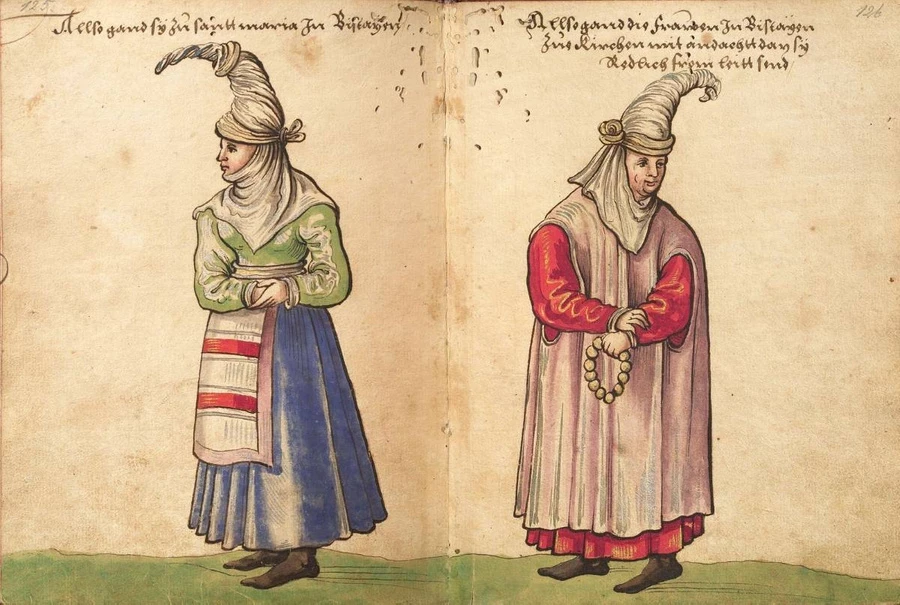 125.
Allso gand sy zu santt maria In Bistayen
126
Allso gand die frawen In Bistayen
Zue Kirchen mit andachtt day sy
Redlich from leitt send